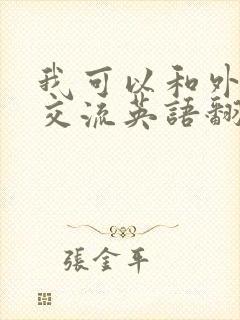 我可以和外
交流英語翻
張金平